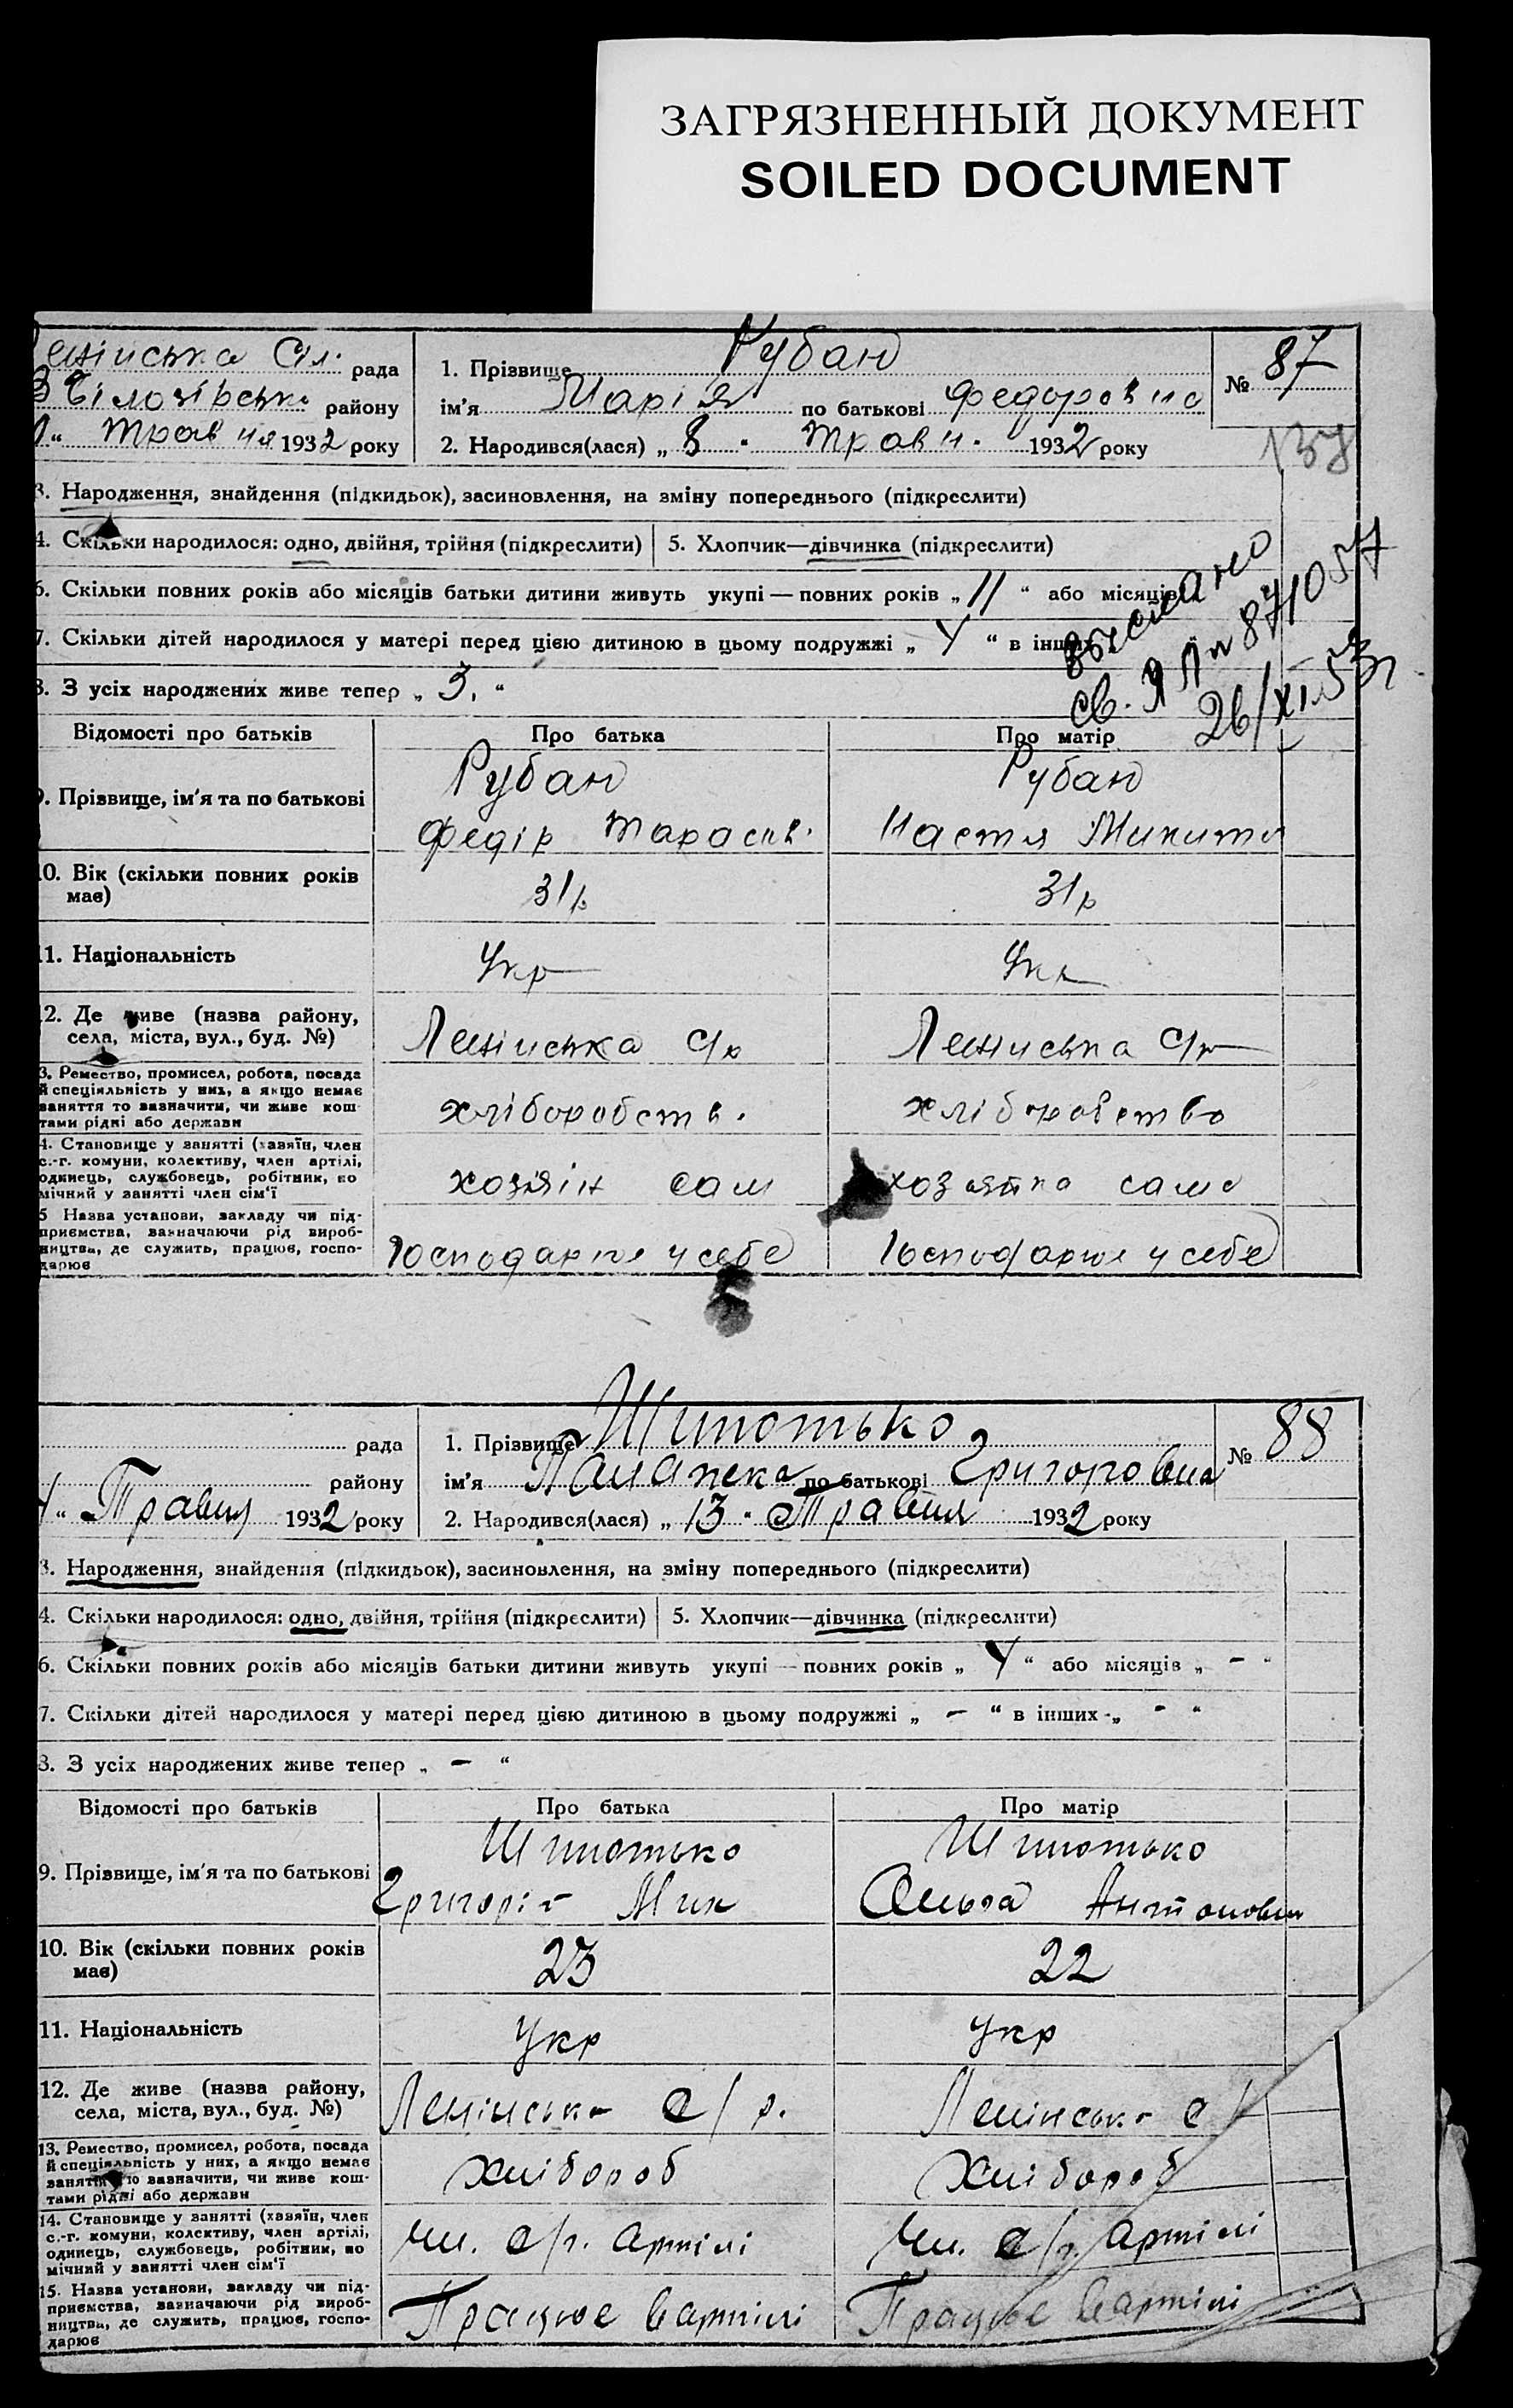 ЗАГРЯЗНЕННЫЙ ДОКУМЕНТ
SOILED DOCUMENT
Ленінська Сіл. рада
В Білозірськ району
“ Травня 1932 року
1. Прізвище Рубан
ім'я Марія по батькові Федоровна
2. Народився(лася) „ 8 “ Травн. 1932 року
№ 87
3. Народження, знайдення (підкидьок), засиновлення, на зміну попереднього (підкреслити)
4. Скільки народилося: одно, двійня, трійня (підкреслити)
5. Хлопчик—дівчинка (підкреслити)
6. Скільки повних років або місяців батьки дитини живуть укупі — повних років „ 11 “ або місяців
7. Скільки дітей народилося у матері перед цією дитиною в цьому подружжі „ 4 “ в інших
8. З усіх народжених живе тепер „ 3. “
св. 871057
26/XI.53г
Відомості про батьків Про батька Про матір
9. Прізвище, ім'я та по батькові
Рубан Рубан
Федір Тарасов. Настя Микити
10. Вік (скільки повних років має)
31р 31р
11. Національність Укр Укр
12. Де живе (назва району,
села, міста, вул., буд. №)
Ленінська С/р Ленінська С/р
13. Ремество, промисел, робота, посада
й спеціяльність у них, а якщо немає
заняття то зазначити, чи живе кош-
тами рідні або держави
хліборобств. хліборобство
14. Становище у занятті (хазяїн, член
с.-г. комуни, колективу, член артілі,
одинець, службовець, робітник, по
мічний у занятті член сім'ї
хозяін сам хозяйка сама
15 Назва установи, закладу чи під-
приємства, зазначаючи рід вироб-
ництва, де служить, працює, госпо-
дарює
Господарює у себе Господарює у себе
рада
району
“ Травня 1932 року
1. Прізвище Шипотько
ім'я Палажека по батькові Григоровна
2. Народився(лася) „ 13 “ Травня 1932 року
№ 88
3. Народження, знайдення (підкидьок), засиновлення, на зміну попереднього (підкреслити)
4. Скільки народилося: одно, двійня, трійня (підкреслити)
5. Хлопчик—дівчинка (підкреслити)
6. Скільки повних років або місяців батьки дитини живуть укупі — повних років „ 4 “ або місяців „ – “
7. Скільки дітей народилося у матері перед цією дитиною в цьому подружжі „ – “ в інших „ – “
8. З усіх народжених живе тепер „ – “
Відомості про батьків Про батька Про матір
9. Прізвище, ім'я та по батькові
Шипотько Шипотько
Григорій Мик Ольга Антоновна
10. Вік (скільки повних років
має)
23 22
11. Національність Укр Укр
12. Де живе (назва району,
села, міста, вул., буд. №)
Ленінська С/р. Ленінська с/
13. Ремество, промисел, робота, посада
й спеціяльність у них, а якщо немає
заняття то зазначити, чи живе кош-
тами рідні або держави
Хлібороб Хлібороб
14. Становище у занятті (хазяїн, член
с.-г. комуни, колективу, член артілі,
одинець, службовець, робітник, по
мічний у занятті член сім'ї
Чл. с/г. артілі Чл. с/г. артілі
15. Назва установи, закладу чи під-
приємства, зазначаючи рід вироб-
ництва, де служить, працює, госпо-
дарює
Працює в артілі Працює в артілі